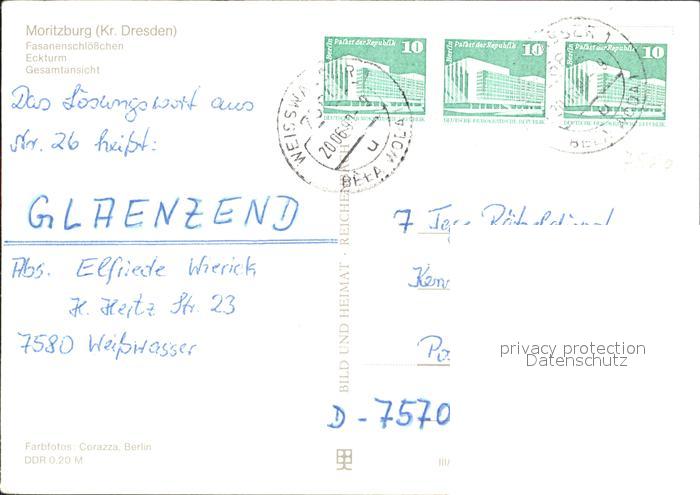 Moritzburg (Kr. Dresden)
Fasanenschlößchen
Eckturm
Gesamtansicht
Berlin Palast der Republik 10
DEUTSCHE DEMOKRATISCHE REPUBLIK
Berlin Palast der Republik 10
DEUTSCHE DEMOKRATISCHE REPUBLIK
Berlin Palast der Republik 10
DEUTSCHE DEMOKRATISCHE REPUBLIK
WEISSWASSER 1
BEŁA WODA
Das Lösungswort aus
Nr. 26 heißt:
GLAENZEND
7 Tage
Abs. Elfriede Wierick
H. Hertz Str. 23
7580 Weißwasser
D - 7570
BILD UND HEIMAT · REICHENBACH
privacy protection
Datenschutz
Farbfotos: Corazza, Berlin
DDR 0,20 M
III/